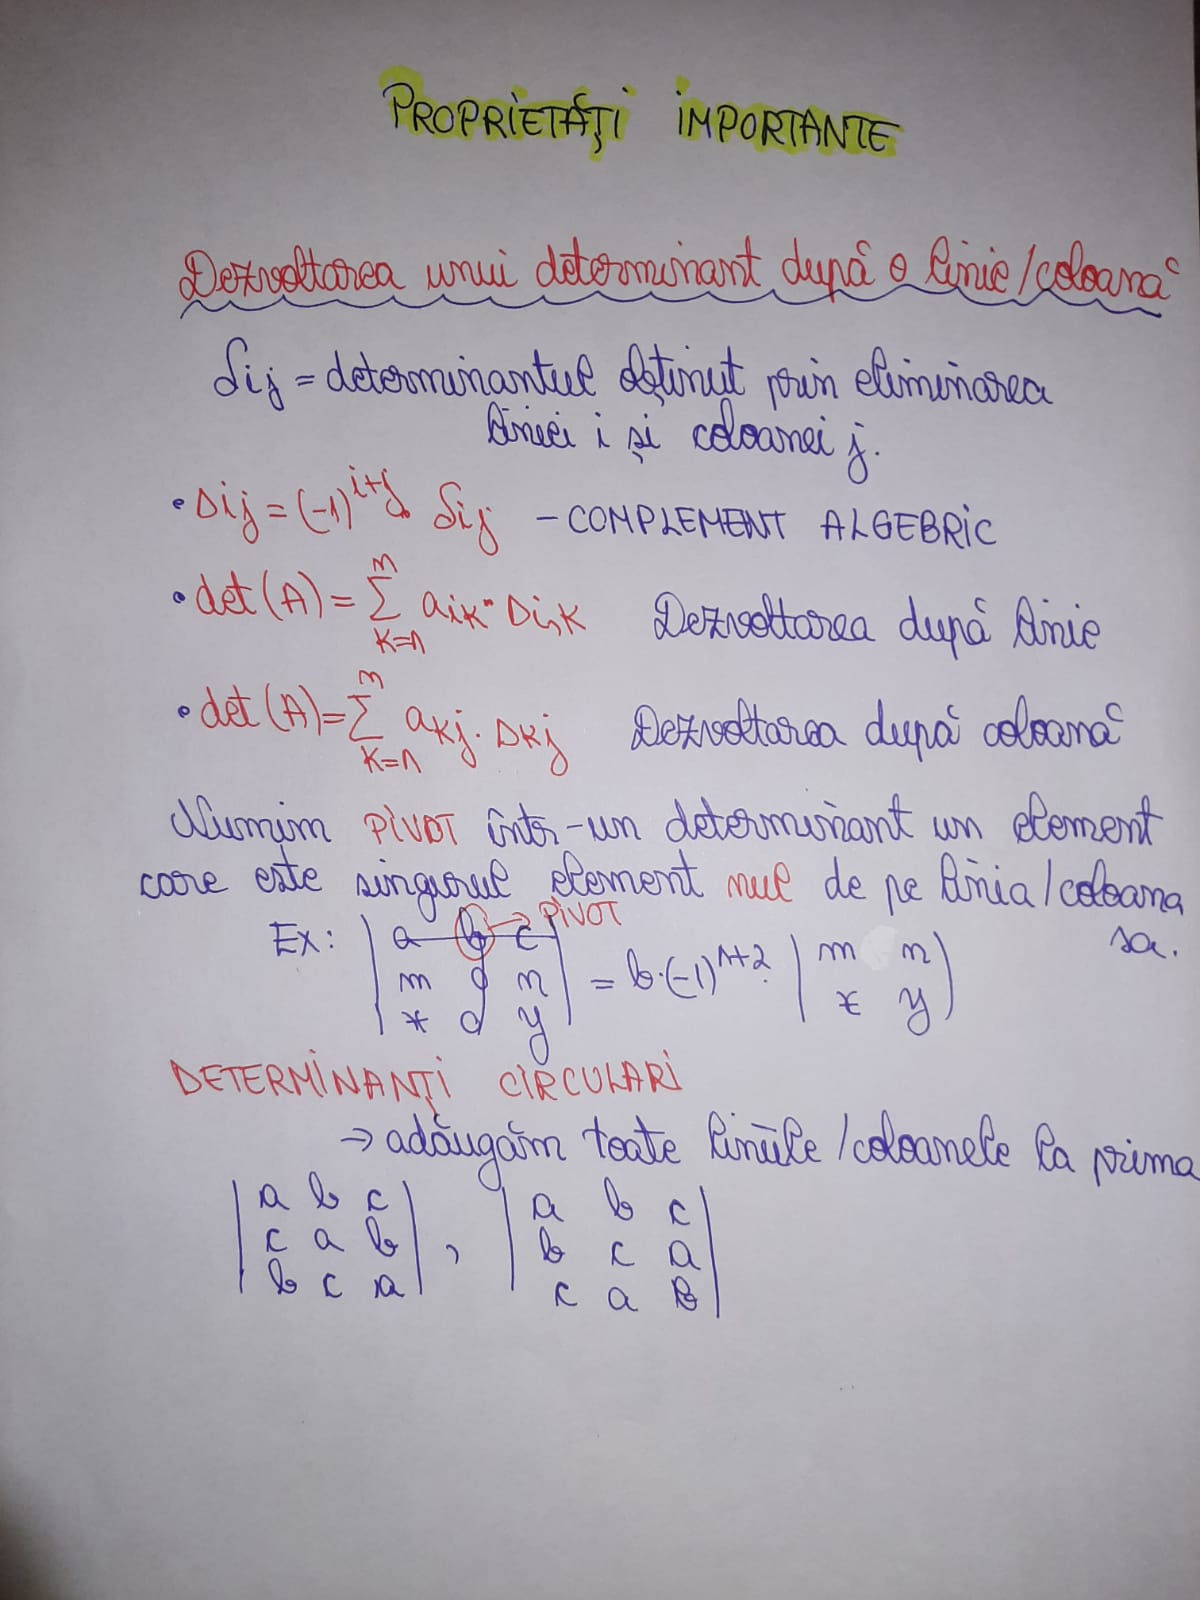 PROPRIETĂȚI IMPORTANTE
Dezvoltarea unui determinant după o linie/coloană
δij = determinantul obținut prin eliminarea
liniei i și coloanei j.
• Δij = (-1)^{i+j} · δij - COMPLEMENT ALGEBRIC
• det(A) = Σ_{k=1}^{n} aik · Δi,k Dezvoltarea după linie
• det(A) = Σ_{k=1}^{n} akj · Δkj Dezvoltarea după coloană
Numim PIVOT într-un determinant un element
care este singurul element nul de pe linia/coloana
sa.
Ex: | a b c | → PIVOT
| m 0 n | = b·(-1)^{1+2} · | m n |
| x 0 y | | x y |
DETERMINANȚI CIRCULARI
→ adăugăm toate liniile/coloanele la prima
| a b c | | a b c |
| c a b | , | b c a |
| b c a | | c a b |